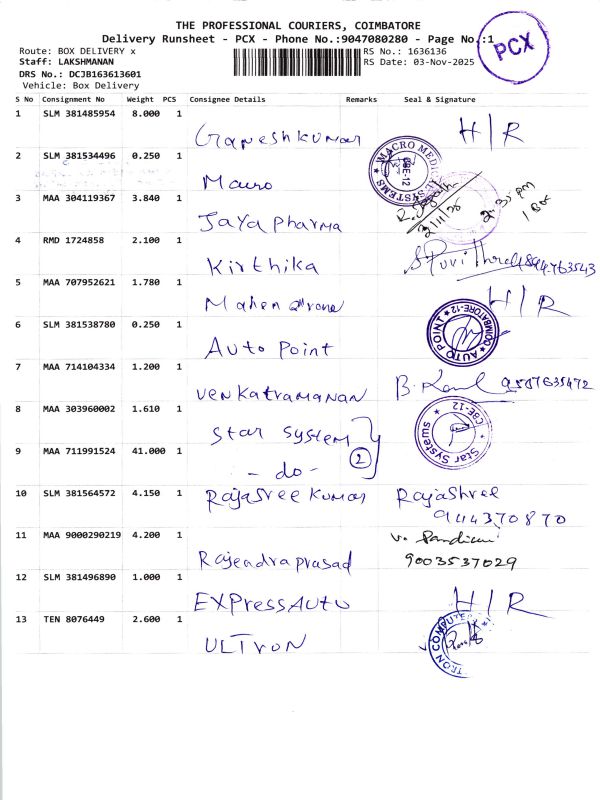 THE PROFESSIONAL COURIERS, COIMBATORE
Delivery Runsheet - PCX - Phone No.:9047080280 - Page No.:1
PCX
Route: BOX DELIVERY x
RS No.: 1636136
Staff: LAKSHMANAN
RS Date: 03-Nov-2025
DRS No.: DCJB163613601
Vehicle: Box Delivery
S No Consignment No Weight PCS Consignee Details Remarks Seal & Signature
1 SLM 381485954 8.000 1 Ganeshkumar H/R
2 SLM 381534496 0.250 1 Macro MACRO MEDICAL SYSTEMS CBE-12
3 MAA 304119367 3.840 1 Jaya Pharma 3/11/25 2.35 pm 1 Box
4 RMD 1724858 2.100 1 Kirthika
5 MAA 707952621 1.780 1 H/R
6 SLM 381538780 0.250 1 Auto Point AUTO POINT COIMBATORE-12
7 MAA 714104334 1.200 1 Venkatramanan 9587635472
8 MAA 303960002 1.610 1 Star System Star Systems CBE-12
9 MAA 711991524 41.000 1 - do - 2
10 SLM 381564572 4.150 1 Rajasree Kumar Rajashree
944370870
11 MAA 9000290219 4.200 1 Rajendraprasad V. Pandian
9003537029
12 SLM 381496890 1.000 1 EXPress AUTO H/R
13 TEN 8076449 2.600 1 ULTRON